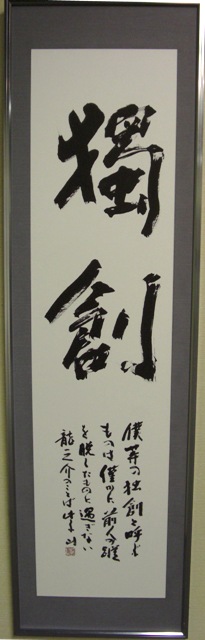 獨創
僕等の独創と呼ぶ
ものは僅かに前人の蹤
を脱したのに過ぎない
龍之介のことば